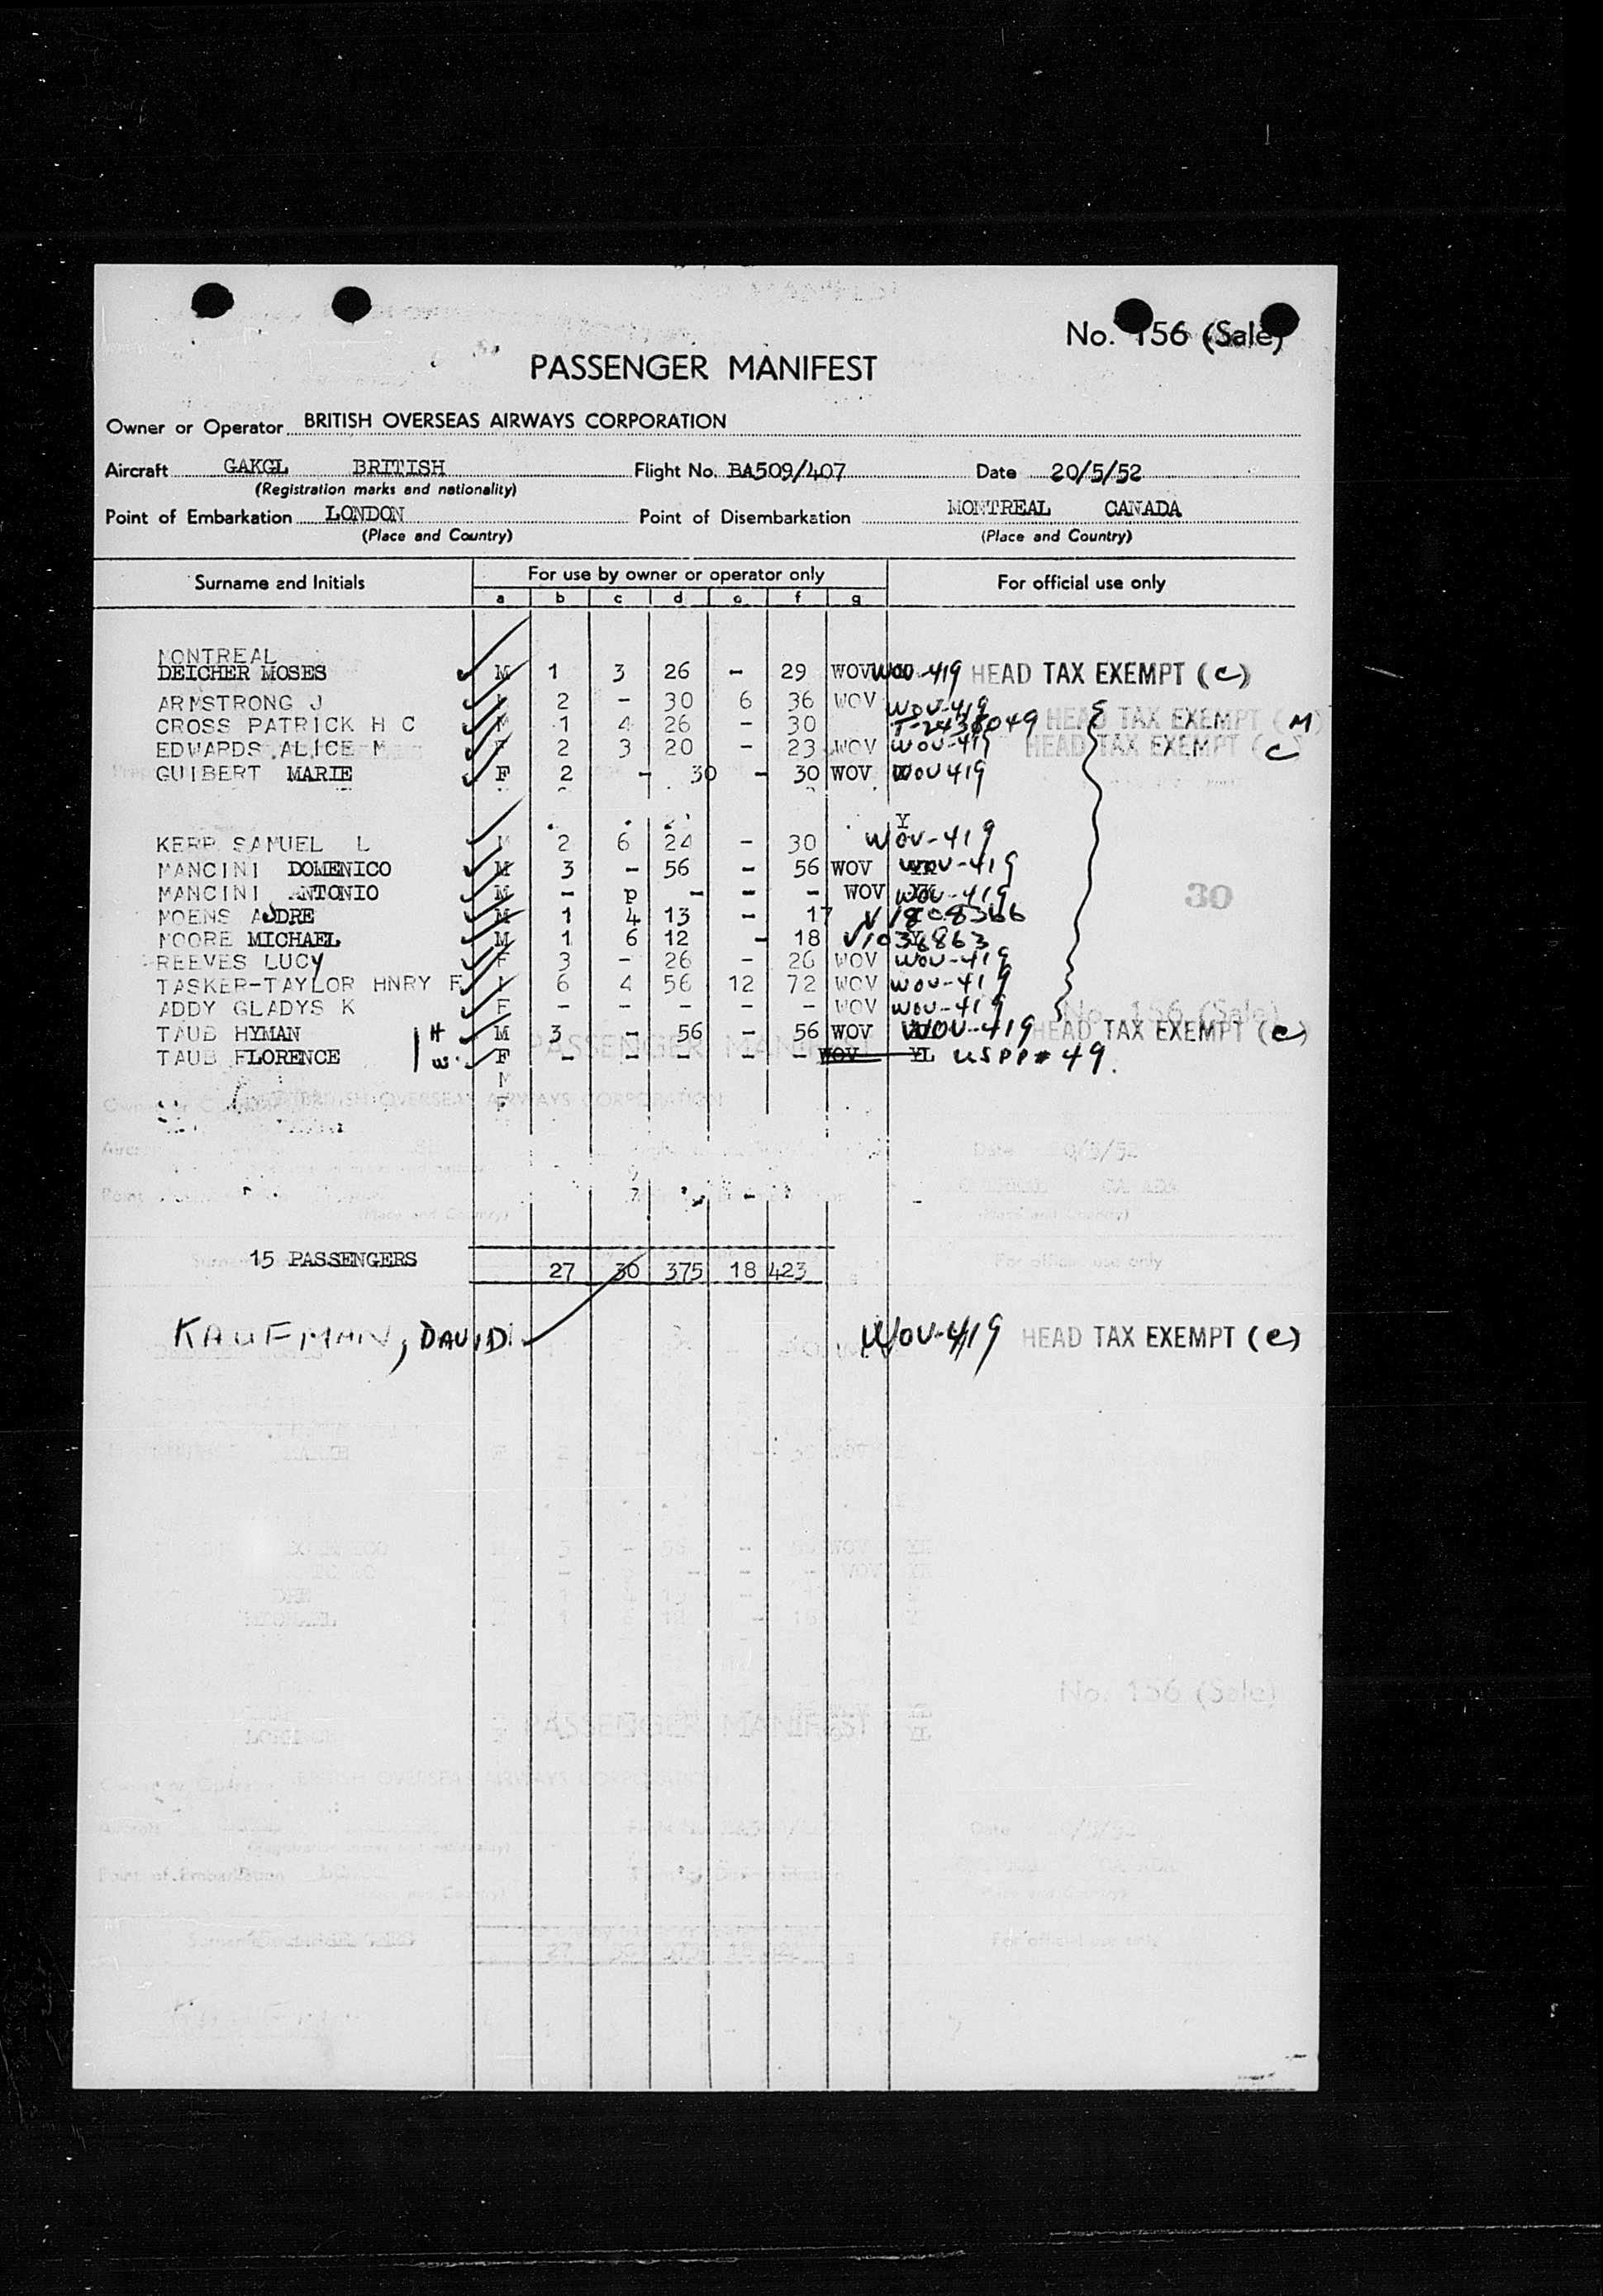 No. 156 (Sale)
PASSENGER MANIFEST
Owner or Operator BRITISH OVERSEAS AIRWAYS CORPORATION
Aircraft GAKGL BRITISH Flight No. BA509/407 Date 20/5/52
(Registration marks and nationality)
Point of Embarkation LONDON Point of Disembarkation MONTREAL CANADA
(Place and Country) (Place and Country)
Surname and Initials For use by owner or operator only For official use only
a b c d e f g
MONTREAL
DEICHER MOSES M 1 3 26 - 29 WOV WOV-419 HEAD TAX EXEMPT (C)
ARMSTRONG J 2 - 30 6 36 WOV WOV-419
CROSS PATRICK H C M 1 4 26 - 30 HEAD TAX EXEMPT (M)
EDWARDS ALICE M F 2 3 20 - 23 WOV WOV-419 HEAD TAX EXEMPT (C
GUIBERT MARIE F 2 - 30 - 30 WOV WOV 419
Y
KERR SAMUEL L M 2 6 24 - 30 WOV-419
MANCINI DOMENICO M 3 - 56 - 56 WOV WOV-419
MANCINI ANTONIO M - p - - - WOV WOV-419
30
MOENS ANDRE M 1 4 13 - 17
MOORE MICHAEL M 1 6 12 - 18
REEVES LUCY F 3 - 26 - 26 WOV WOV-419
TASKER-TAYLOR HNRY F 6 4 56 12 72 WOV WOV-419
ADDY GLADYS K F - - - - - WOV WOV-419
TAUB HYMAN H M 3 - 56 - 56 WOV WOV-419 HEAD TAX EXEMPT (C)
TAUB FLORENCE W. F - - - - - WOV YL USPP# 49.
M
F
15 PASSENGERS 27 30 375 18 423
KAUFMAN, DAVID WOV-419 HEAD TAX EXEMPT (C)